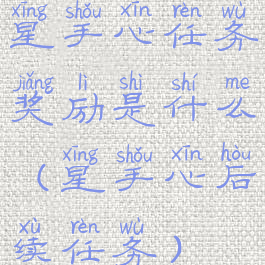 xīng shǒu xīn rèn wù
星手心任务
jiǎng lì shì shí me
奖励是什么
xīng shǒu xīn hòu
（星手心后
xù rèn wù
续任务）